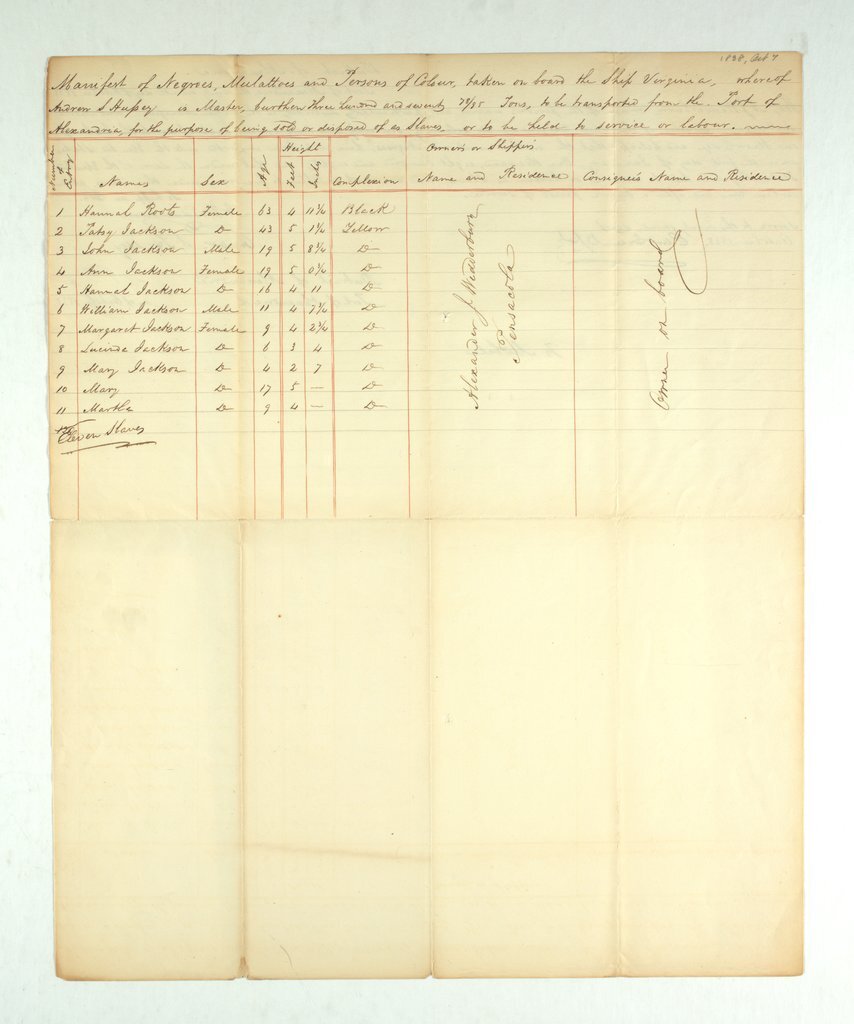 1838, Oct 7
Manifest of Negroes, Mulattoes and Persons of Colour, taken on board the Ship Virginia, whereof
Andrew S Hussey is Master, burthen three hundred and seventy 74/95 Tons, to be transported from the Port of
Alexandria, for the purpose of being sold or disposed of as Slaves, or to be held to service or labour.
Number of Entry Names Sex Age Height Feet Inches Complexion Owners or Shippers Name and Residence Consignee's Name and Residence
1 Hannah Roots Female 63 4 11¼ Black
2 Patsy Jackson Do 43 5 1¼ Yellow
3 John Jackson Male 19 5 8¼ Do
4 Ann Jackson Female 19 5 0¼ Do
5 Hannah Jackson Do 16 4 11 Do
6 William Jackson Male 11 4 7¼ Do
7 Margaret Jackson Female 9 4 2¼ Do
8 Lucinda Jackson Do 6 3 4 Do
9 Mary Jackson Do 4 2 7 Do
10 Mary Do 17 5 — Do
11 Martha Do 9 4 — Do
Eleven Slaves
Alexander J. Wedderburn
Pensacola
Owner on board